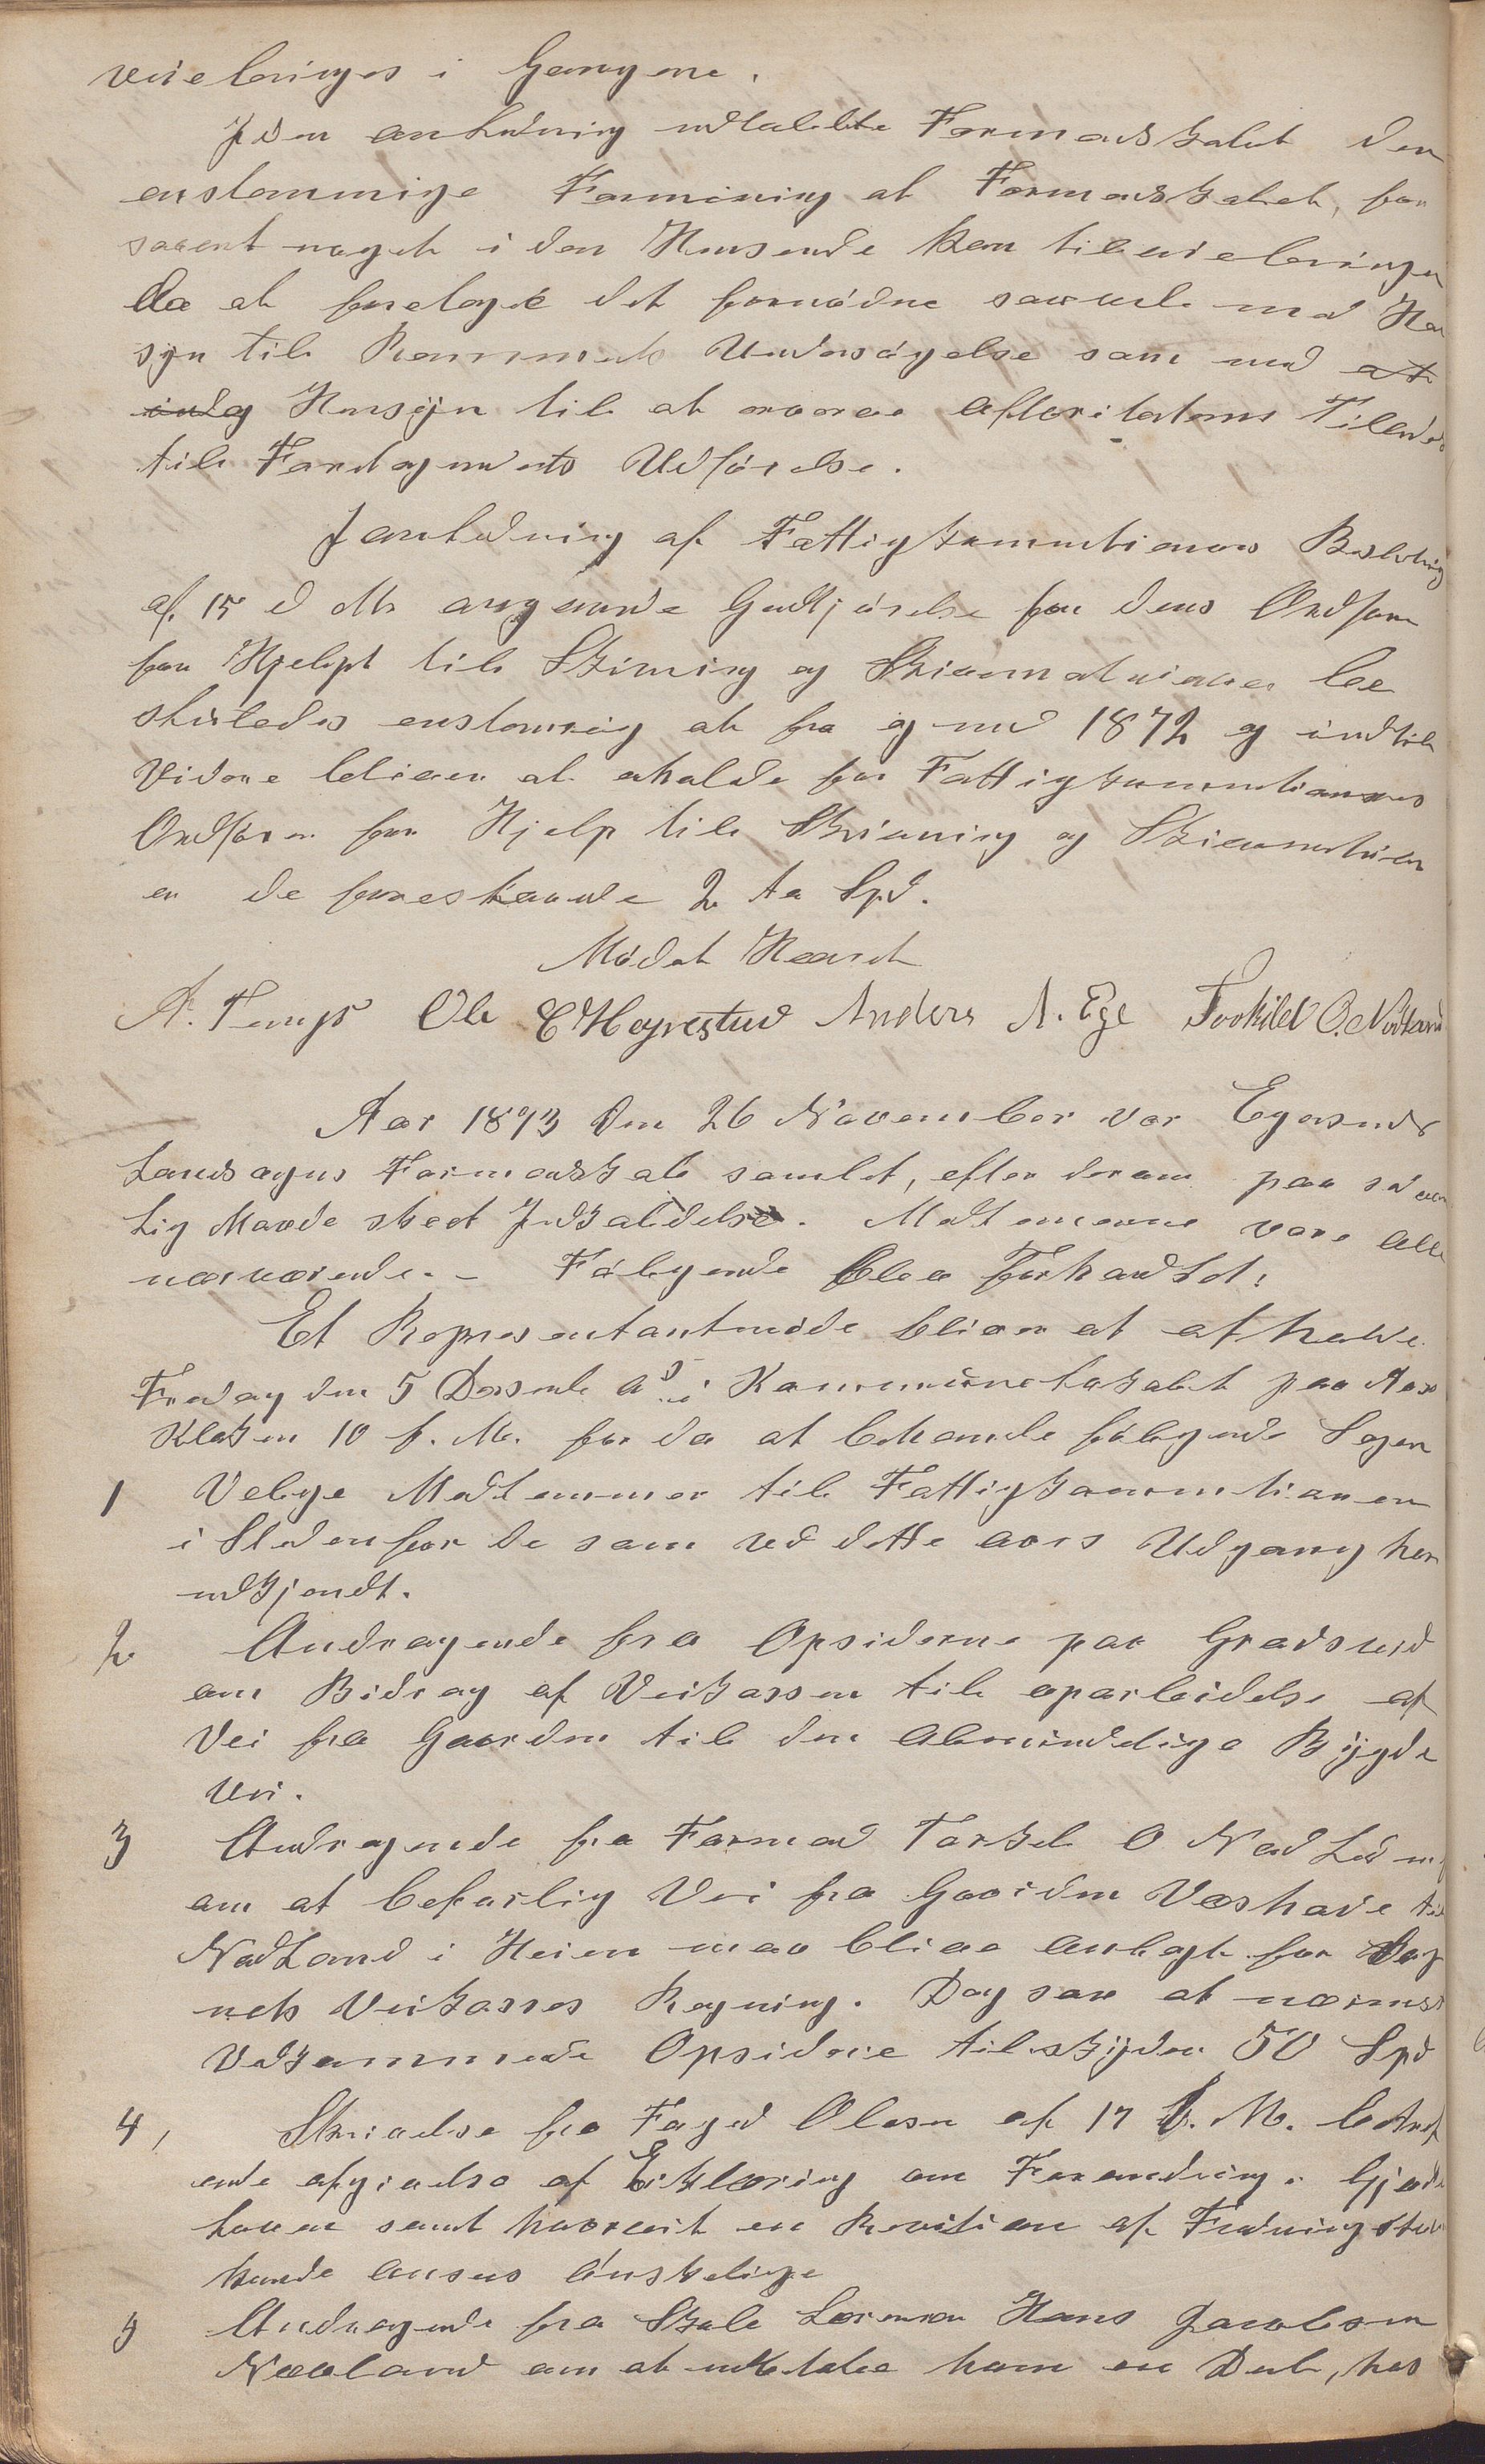 veiebringes i Gangene.
I den anledning udtalte Formandskabet den
enstemmige Formening at Formandskabet, for
saavert noget i den Hensende kan tilveiebringes
da at foretage det fornødne saavel med Hen
syn til Rummets Undersøgelse som med at
indg Hensyn til at Autoriteterns Tilladelse
til Foretagendets Udførelse.
I anledning af Fattigkommitionens Beslutning
af 15 d M. angaaende Godtjørelse for dens Ordfører
for Hjelpt til Skrivning og Skrivmatrialier be
sluttedes enstemmig at fra og med 1872 og indtil
Videre bliver at erholde for Fattigkommitionens
Ordfører for Hjelp til Skrivning og Skrivmatriali
er de foreslaaede 2 to Spd.
Mødet Hævet
A. Tengs Ole E Høyrestad Anders A. Ege Torkild O. Nodland
Aar 1873 den 26 November var Egersunds
Landsogns Formandskab samlet, efter derom paa sædvan
lig Maade skeet Indkaldelse. Medlemmerne vare alle
nærværende. - Følgende blev forhandlet:
Et Representantmøde bliver at afholde
Fredag den 5 Desemb. A.d. i Kommunelokalet paa Aase
Klokken 10 f. M. for da at behandle følgende Sager
1 Velge Medlemmer til Fattigkommitionen
i Steden for de som ved dette aars Udgang har
udtjendt.
2 Andragende fra Opsiderne paa Gradsted
om Bidrag af Veikassen til oparbeidelse af
Vei fra Gaarden til den almindelige Bygde
vei.
3 Andragende fra Formand Torkel O Nodland
om at befarlig Vei fra Gaarden Vashave til
Nodland i Heien maa blive anlagt for Sog
nets Veikasses Regning. Dog saa at nærmest
Vedkommende Opsidere tilskyder 50 Spd
4, Skrivelse fra Foged Olesen af 17 d. M. betref
ende afgivelse af Erklæring om Forandring i Gjærde
loven samt hvorvidt en Revition af
kunde ansees ønskelige
5 Andragende fra Skole Læreren Hans Jacobsen
Navland om at udbetale ham en Deel, hos